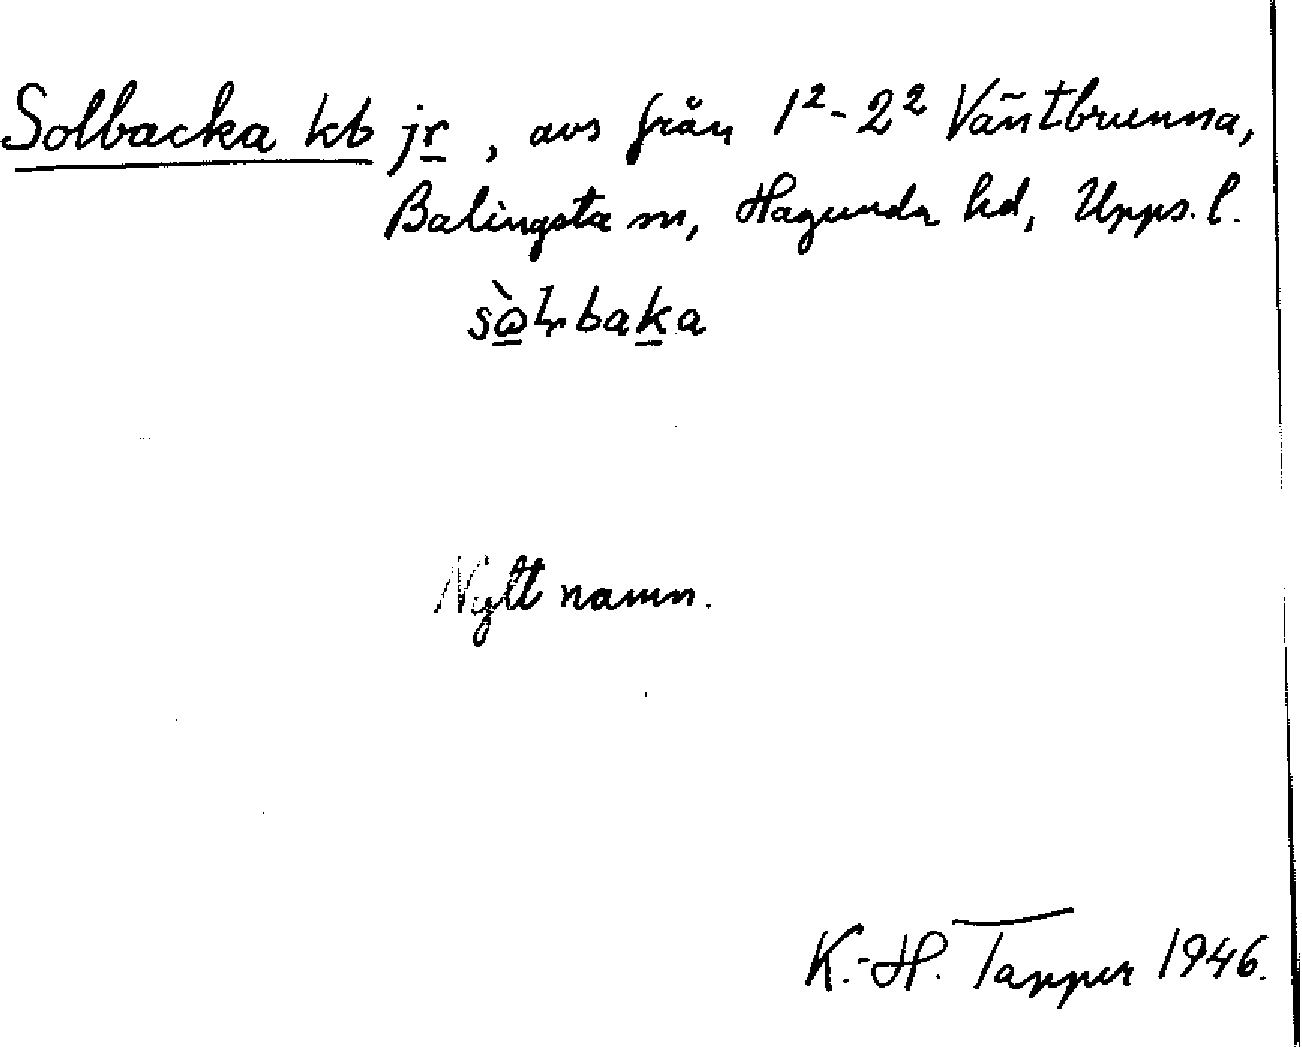 Solbacka kb jr, avs från 1²-2² Väntbrunna,
Balingsta sn, Hagunda hd, Upps. l.
Nytt namn.
K.-H. Tapper 1946.